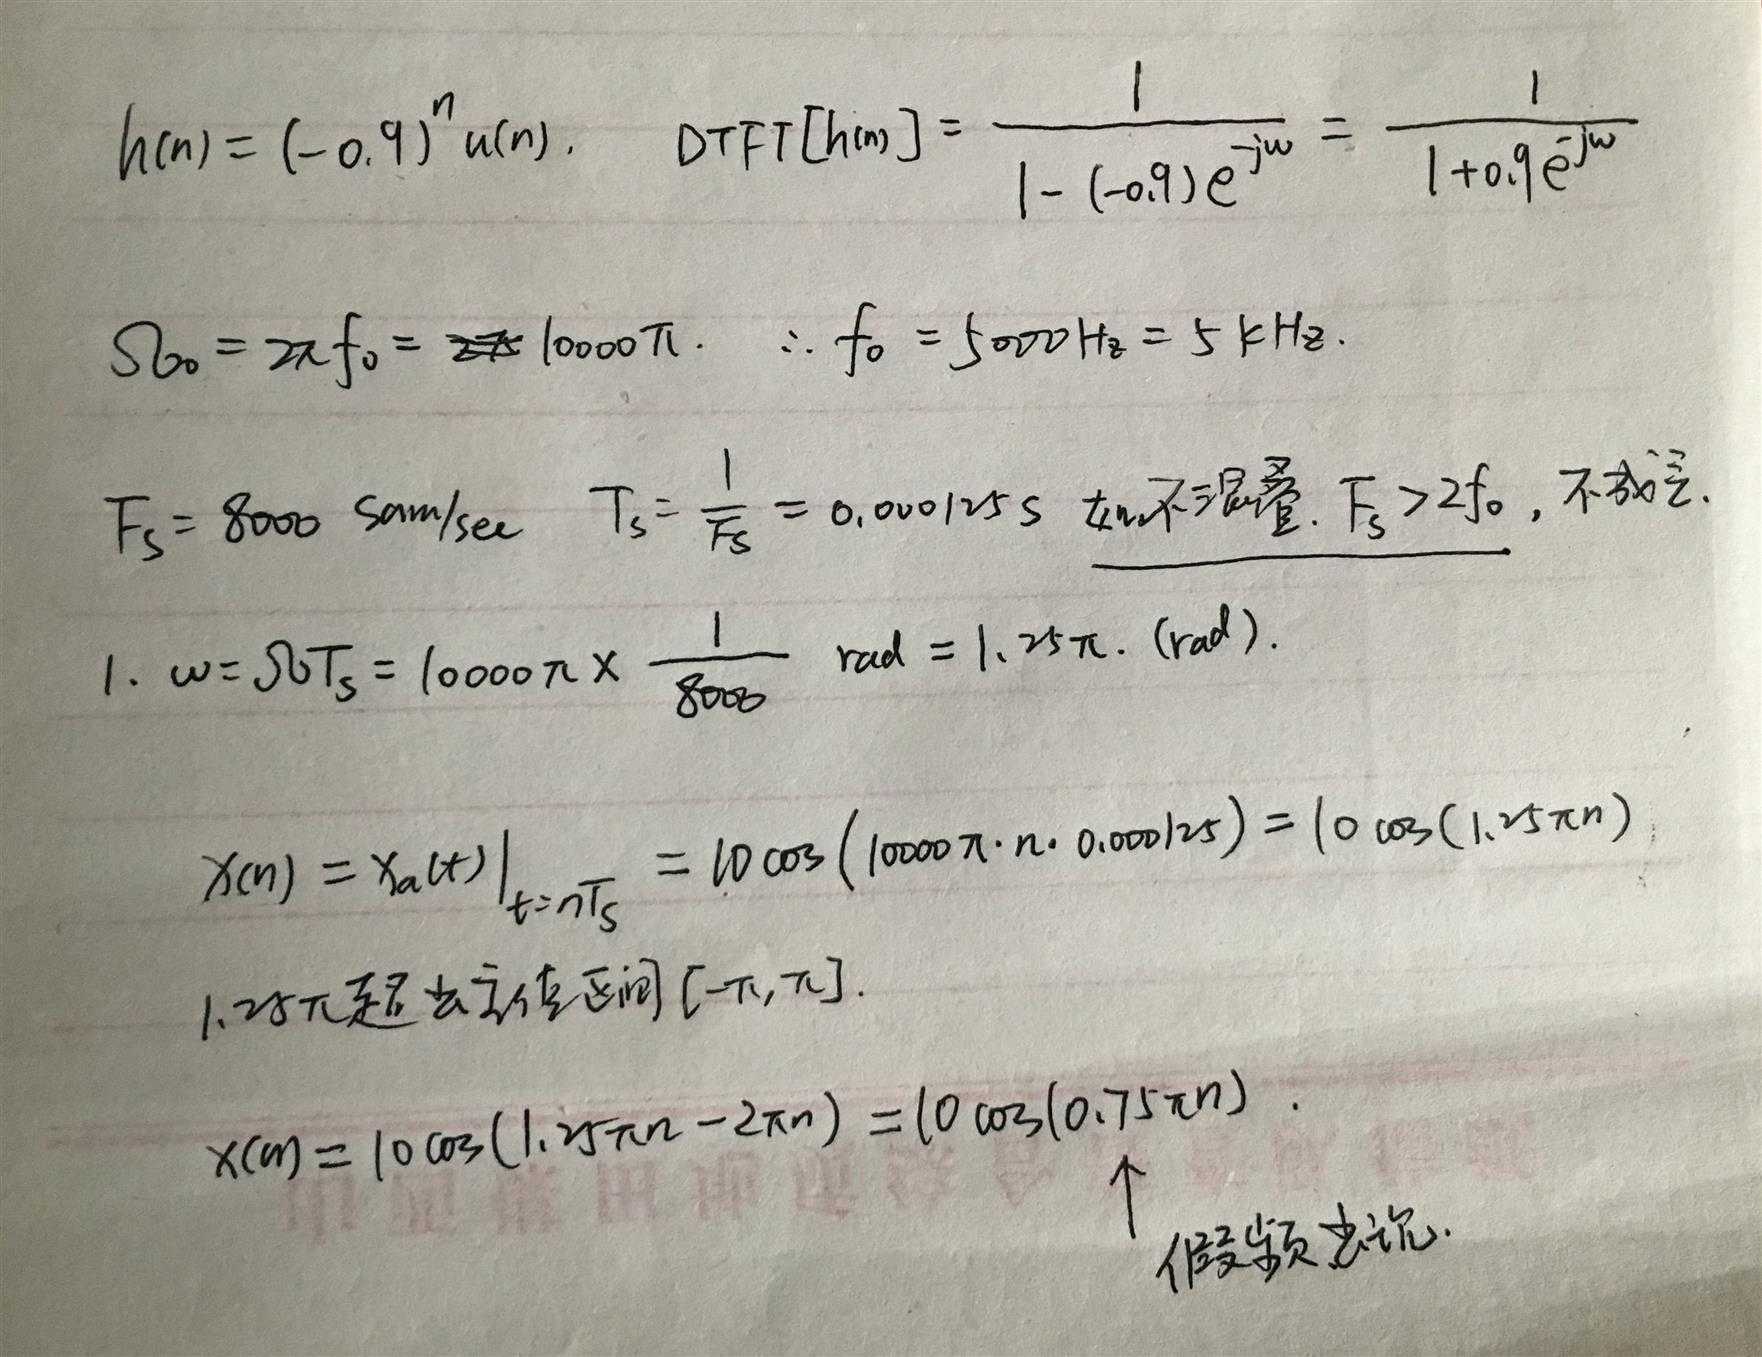 h(n) = (-0.9)^n u(n). DTFT[h(n)] = \frac{1}{1-(-0.9)e^{-jω}} = \frac{1}{1+0.9e^{-jω}}
Ω_0 = 2πf_0 = 10000π. ∴ f_0 = 5000Hz = 5 kHz.
F_s = 8000 sam/sec T_s = \frac{1}{F_s} = 0.000125 s 如不混叠. F_s > 2f_0, 不成立.
1. ω = Ω_0T_s = 10000π × \frac{1}{8000} rad = 1.25π. (rad).
x(n) = x_a(t)|_{t=nT_s} = 10 cos(10000π·n·0.000125) = 10 cos(1.25πn)
1.25π超出主值区间[-π, π].
x(n) = 10 cos(1.25πn - 2πn) = 10 cos(0.75πn).
↑
假频出现.